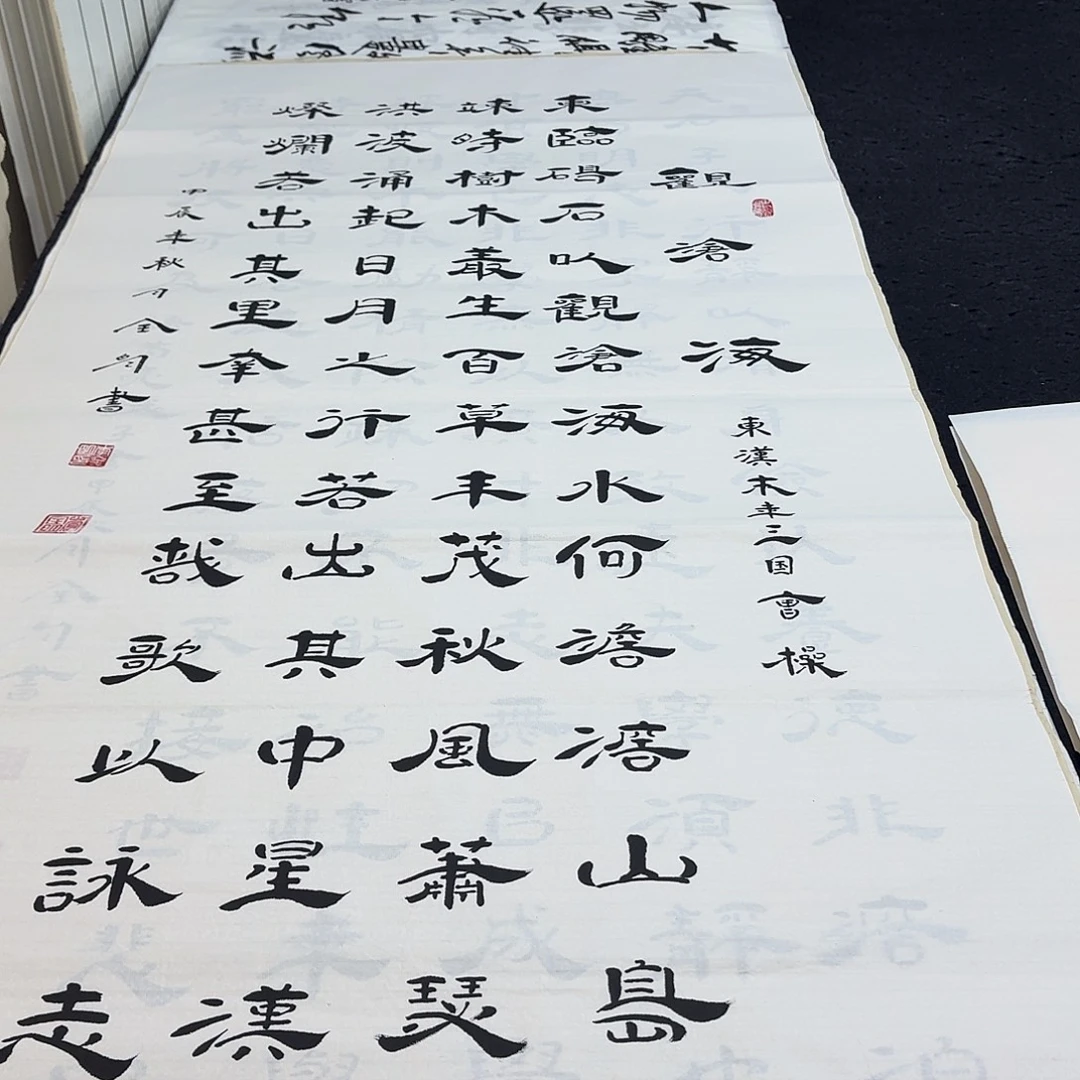 觀滄海 東漢末年三国曹操
東臨碣石以觀滄海水何澹澹山島
竦峙樹木叢生百草丰茂秋風蕭瑟
洪波涌起日月之行若出其中星漢
燦爛若出其里幸甚至哉歌以詠志
甲辰末秋 全 書